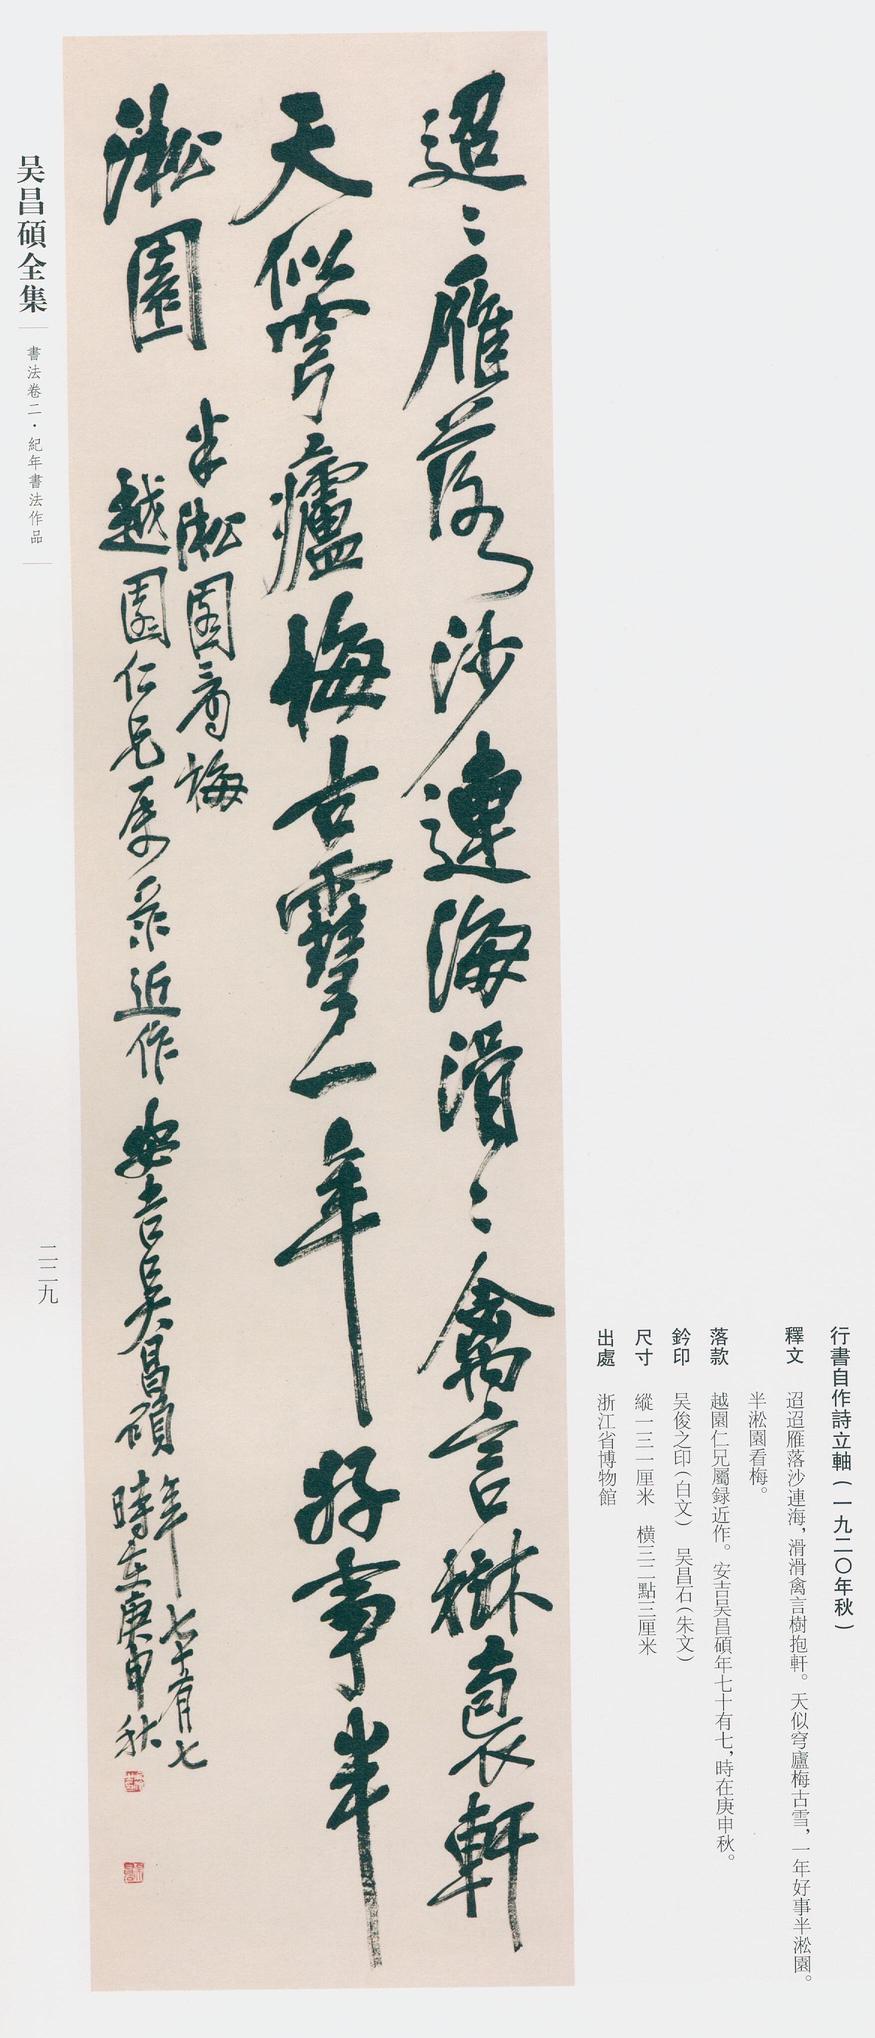 迢〻雁落沙連海滑〻禽言樹裹軒
天似穹廬梅古雪一年好事半
淞園
半淞園看梅
越園仁兄屬录近作安吉吳昌碩年七十有七
時在庚申秋
行書自作詩立軸(一九二〇年秋)
釋文 迢迢雁落沙連海,滑滑禽言樹抱軒。天似穹廬梅古雪,一年好事半淞園。
半淞園看梅。
落款 越園仁兄屬録近作。安吉吴昌碩年七十有七,時在庚申秋。
鈐印 吴俊之印(白文) 吴昌石(朱文)
尺寸 縱一三一厘米 橫三二點三厘米
出處 浙江省博物館
吴昌碩全集
書法卷二·紀年書法作品
二二九